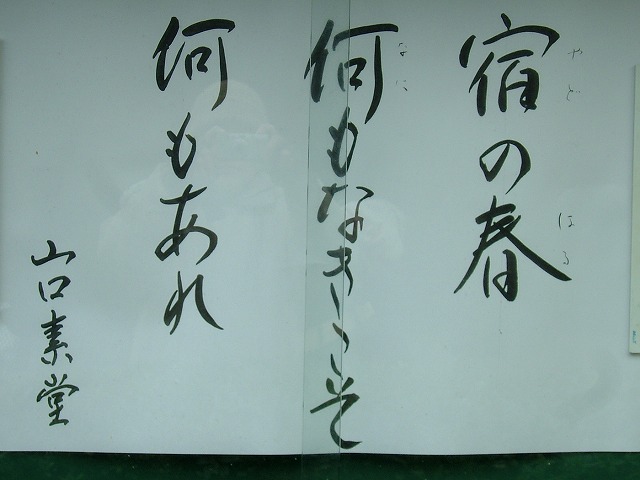 宿の春
やど
はる
何もなきこそ
なに
何もあれ
山口素堂